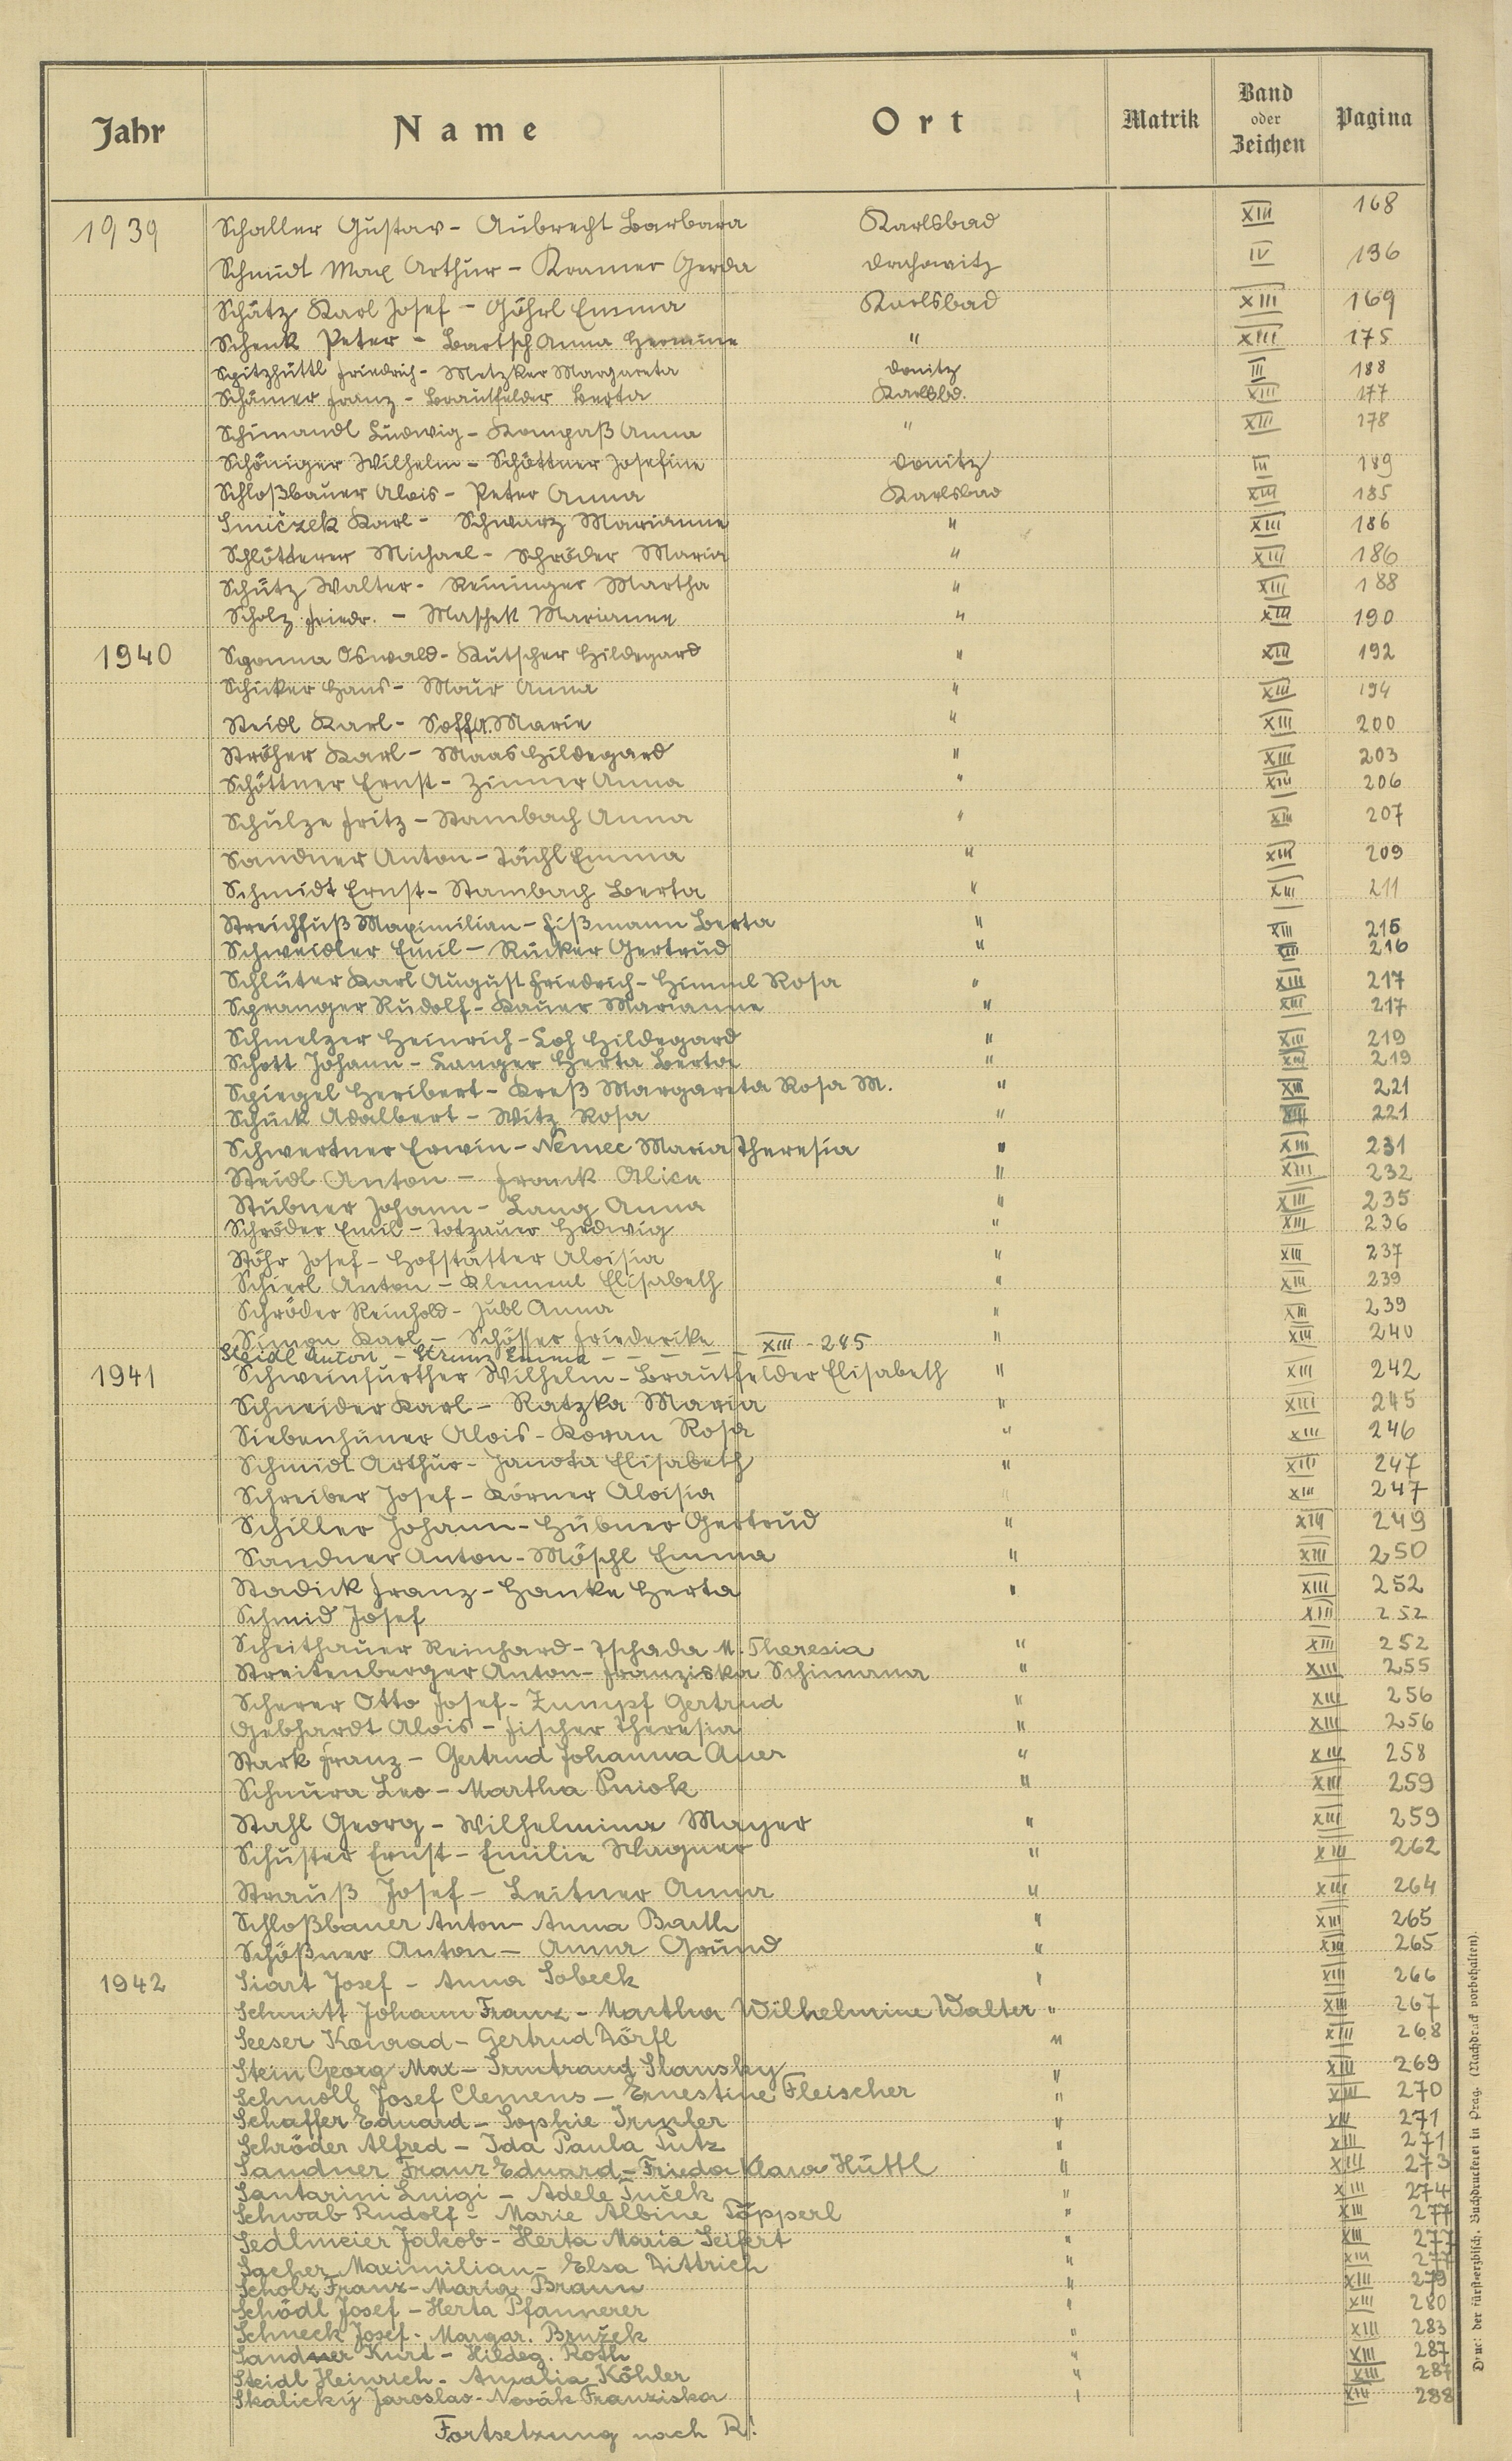 Jahr Name Ort Matrik Band oder Zeichen Pagina
1939 Schaller Gustav - Aubrecht Barbara Karlsbad XIII 168
Schmidt Max Arthur - Kramer Gerda Drahowitz IV 136
Schätz Karl Josef - Göhrl Emma Karlsbad XIII 169
Schenk Peter - Bartsch Anna Hermine " XIII 175
Spitzhüttl Friedrich - Metzker Margareta Donitz III 188
Schömer Franz - Brautfelder Berta Karlsbd. XIII 177
Schimandl Ludwig - Kompaß Anna " XIII 178
Schöniger Wilhelm - Schöttner Josefine Donitz III 189
Schloßbauer Alois - Peter Anna Karlsbad XIII 185
Smičzek Karl - Schwarz Marianne " XIII 186
Schlötterer Michael - Schröder Maria " XIII 186
Schütz Walter - Reininger Martha " XIII 188
Scholz Friedr. - Maschek Marianne " XIII 190
1940 Sponna Oswald - Kutscher Hildegard " XIII 192
Schicker Hans - Maur Anna " XIII 194
Steidl Karl - Marie " XIII 200
Ströher Karl - Maas Hildegard " XIII 203
Schöttner Ernst - Zinner Anna " XIII 206
Schulze Fritz - Stambach Anna " XIII 207
Sandner Anton - Töchl Emma " XIII 209
Schmidt Ernst - Stambach Berta " XIII 211
Streichfuß Maximilian - Fißmann Berta " XIII 215
Schweidler Emil - Rücker Gertrud " XIII 216
Schlüter Karl August Friedrich - Himml Rosa " XIII 217
Spranger Rudolf - Kauer Marianne " XIII 217
Schmelzer Heinrich - Loh Hildegard " XIII 219
Schott Johann - Langer Herta Berta " XIII 219
Spiegel Heribert - Kreß Margareta Rosa M. " XIII 221
Schück Adalbert - Witz Rosa " XIII 221
Schwertner Erwin - Němec Maria Theresia " XIII 231
Steidl Anton - Frank Alice " XIII 232
Stubner Johann - Lang Anna " XIII 235
Schröder Emil - Totzauer Hedwig " XIII 236
Stöhr Josef - Hofstätter Aloisia " XIII 237
Schierl Anton - Klement Elisabeth " XIII 239
Schröder Reinhold - Jubl Anna " XIII 239
Simon Karl - Schösser Friederike " XIII 240
Steidl Anton - Strunz Emma - - - - XIII - 285
1941 Schweinfurther Wilhelm - Brautfelder Elisabeth " XIII 242
Schneider Karl - Ratzka Maria " XIII 245
Siebenhüner Alois - Kovan Rosa " XIII 246
Schmidt Arthur - Janota Elisabeth " XIII 247
Schreiber Josef - Körner Aloisia XIII 247
Schiller Johann - Hübner Gertrud " XIII 249
Sandner Anton - Möschl Emma " XIII 250
Stadick Franz - Hanke Herta " XIII 252
Schmid Josef XIII 252
Scheithauer Reinhard - Tschada M. Theresia " XIII 252
Streitenberger Anton - Franziska Schimana " XIII 255
Scherer Otto Josef - Zumpf Gertrud " XIII 256
Gebhardt Alois - Fischer Theresia " XIII 256
Stark Franz - Gertrud Johanna Auer " XIII 258
Schnura Leo - Martha Pniok " XIII 259
Stahl Georg - Wilhelmine Mayer " XIII 259
Schuster Ernst - Emilie Wagner " XIII 262
Strauß Josef - Leitner Anna " XIII 264
Schloßbauer Anton - Anna Barth " XIII 265
Schößner Anton - Anna Grund " XIII 265
1942 Siart Josef - Anna Sobeck " XIII 266
Schmitt Johann Franz - Martha Wilhelmine Walter " XIII 267
Seeser Konrad - Gertrud Dörfl " XIII 268
Stein Georg Max - Irmtraud Slansky " XIII 269
Schmoll Josef Clemens - Ernestine Fleischer " XIII 270
Schaffer Eduard - Sophie Irmler " XIII 271
Schröder Alfred - Ida Paula Putz " XIII 271
Sandner Franz Eduard - Frieda Klara Hüttl " XIII 273
Santarini Luigi - Adele Tuček " XIII 274
Schwab Rudolf - Marie Albine Töpperl " XIII 277
Sedlmeier Jakob - Herta Maria Seifert " XIII 277
Sacher Maximilian - Elsa Dittrich " XIII 277
Scholz Franz - Maria Braun " XIII 279
Schödl Josef - Herta Pfannerer " XIII 280
Schneck Josef - Margar. Bružek " XIII 283
Sandner Kurt - Hildeg. Roth " XIII 287
Steidl Heinrich - Amalia Köhler " XIII 287
Skalický Jaroslav - Novák Franziska " XIII 288
Fortsetzung nach R!
Druck der fürsterzbisch. Buchdruckerei in Prag. (Nachdruck vorbehalten).